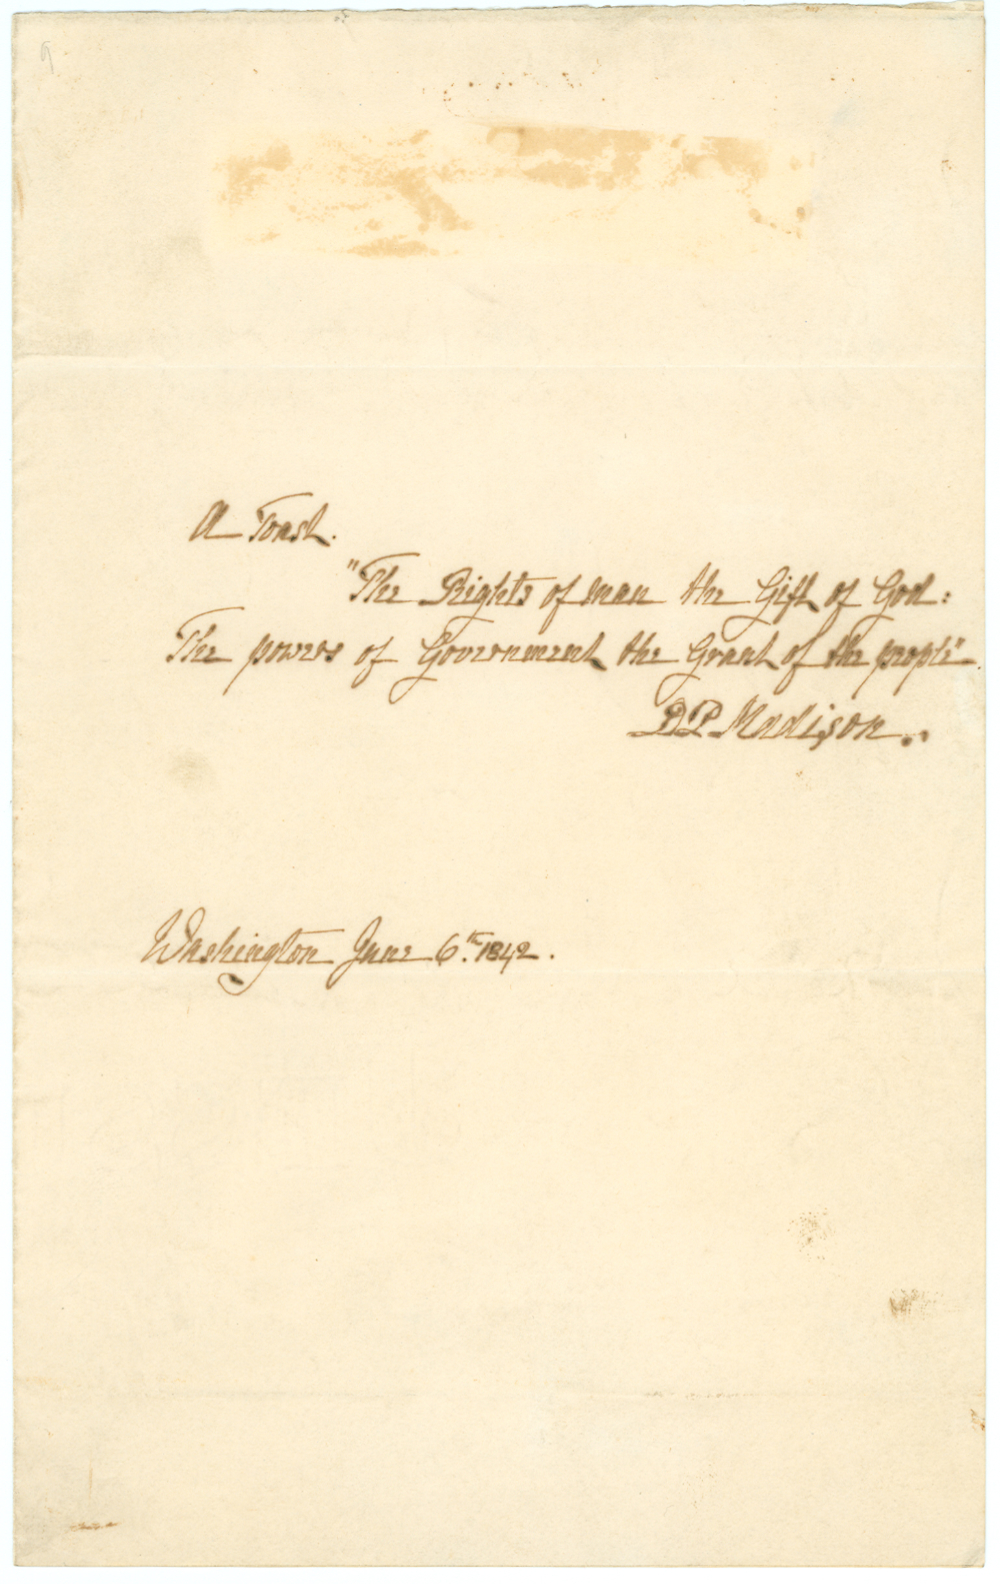 A Toast.
"The Rights of man the Gift of God:
The powers of Government the Grant of the people".
D P Madison.
Washington June 6th. 1842.